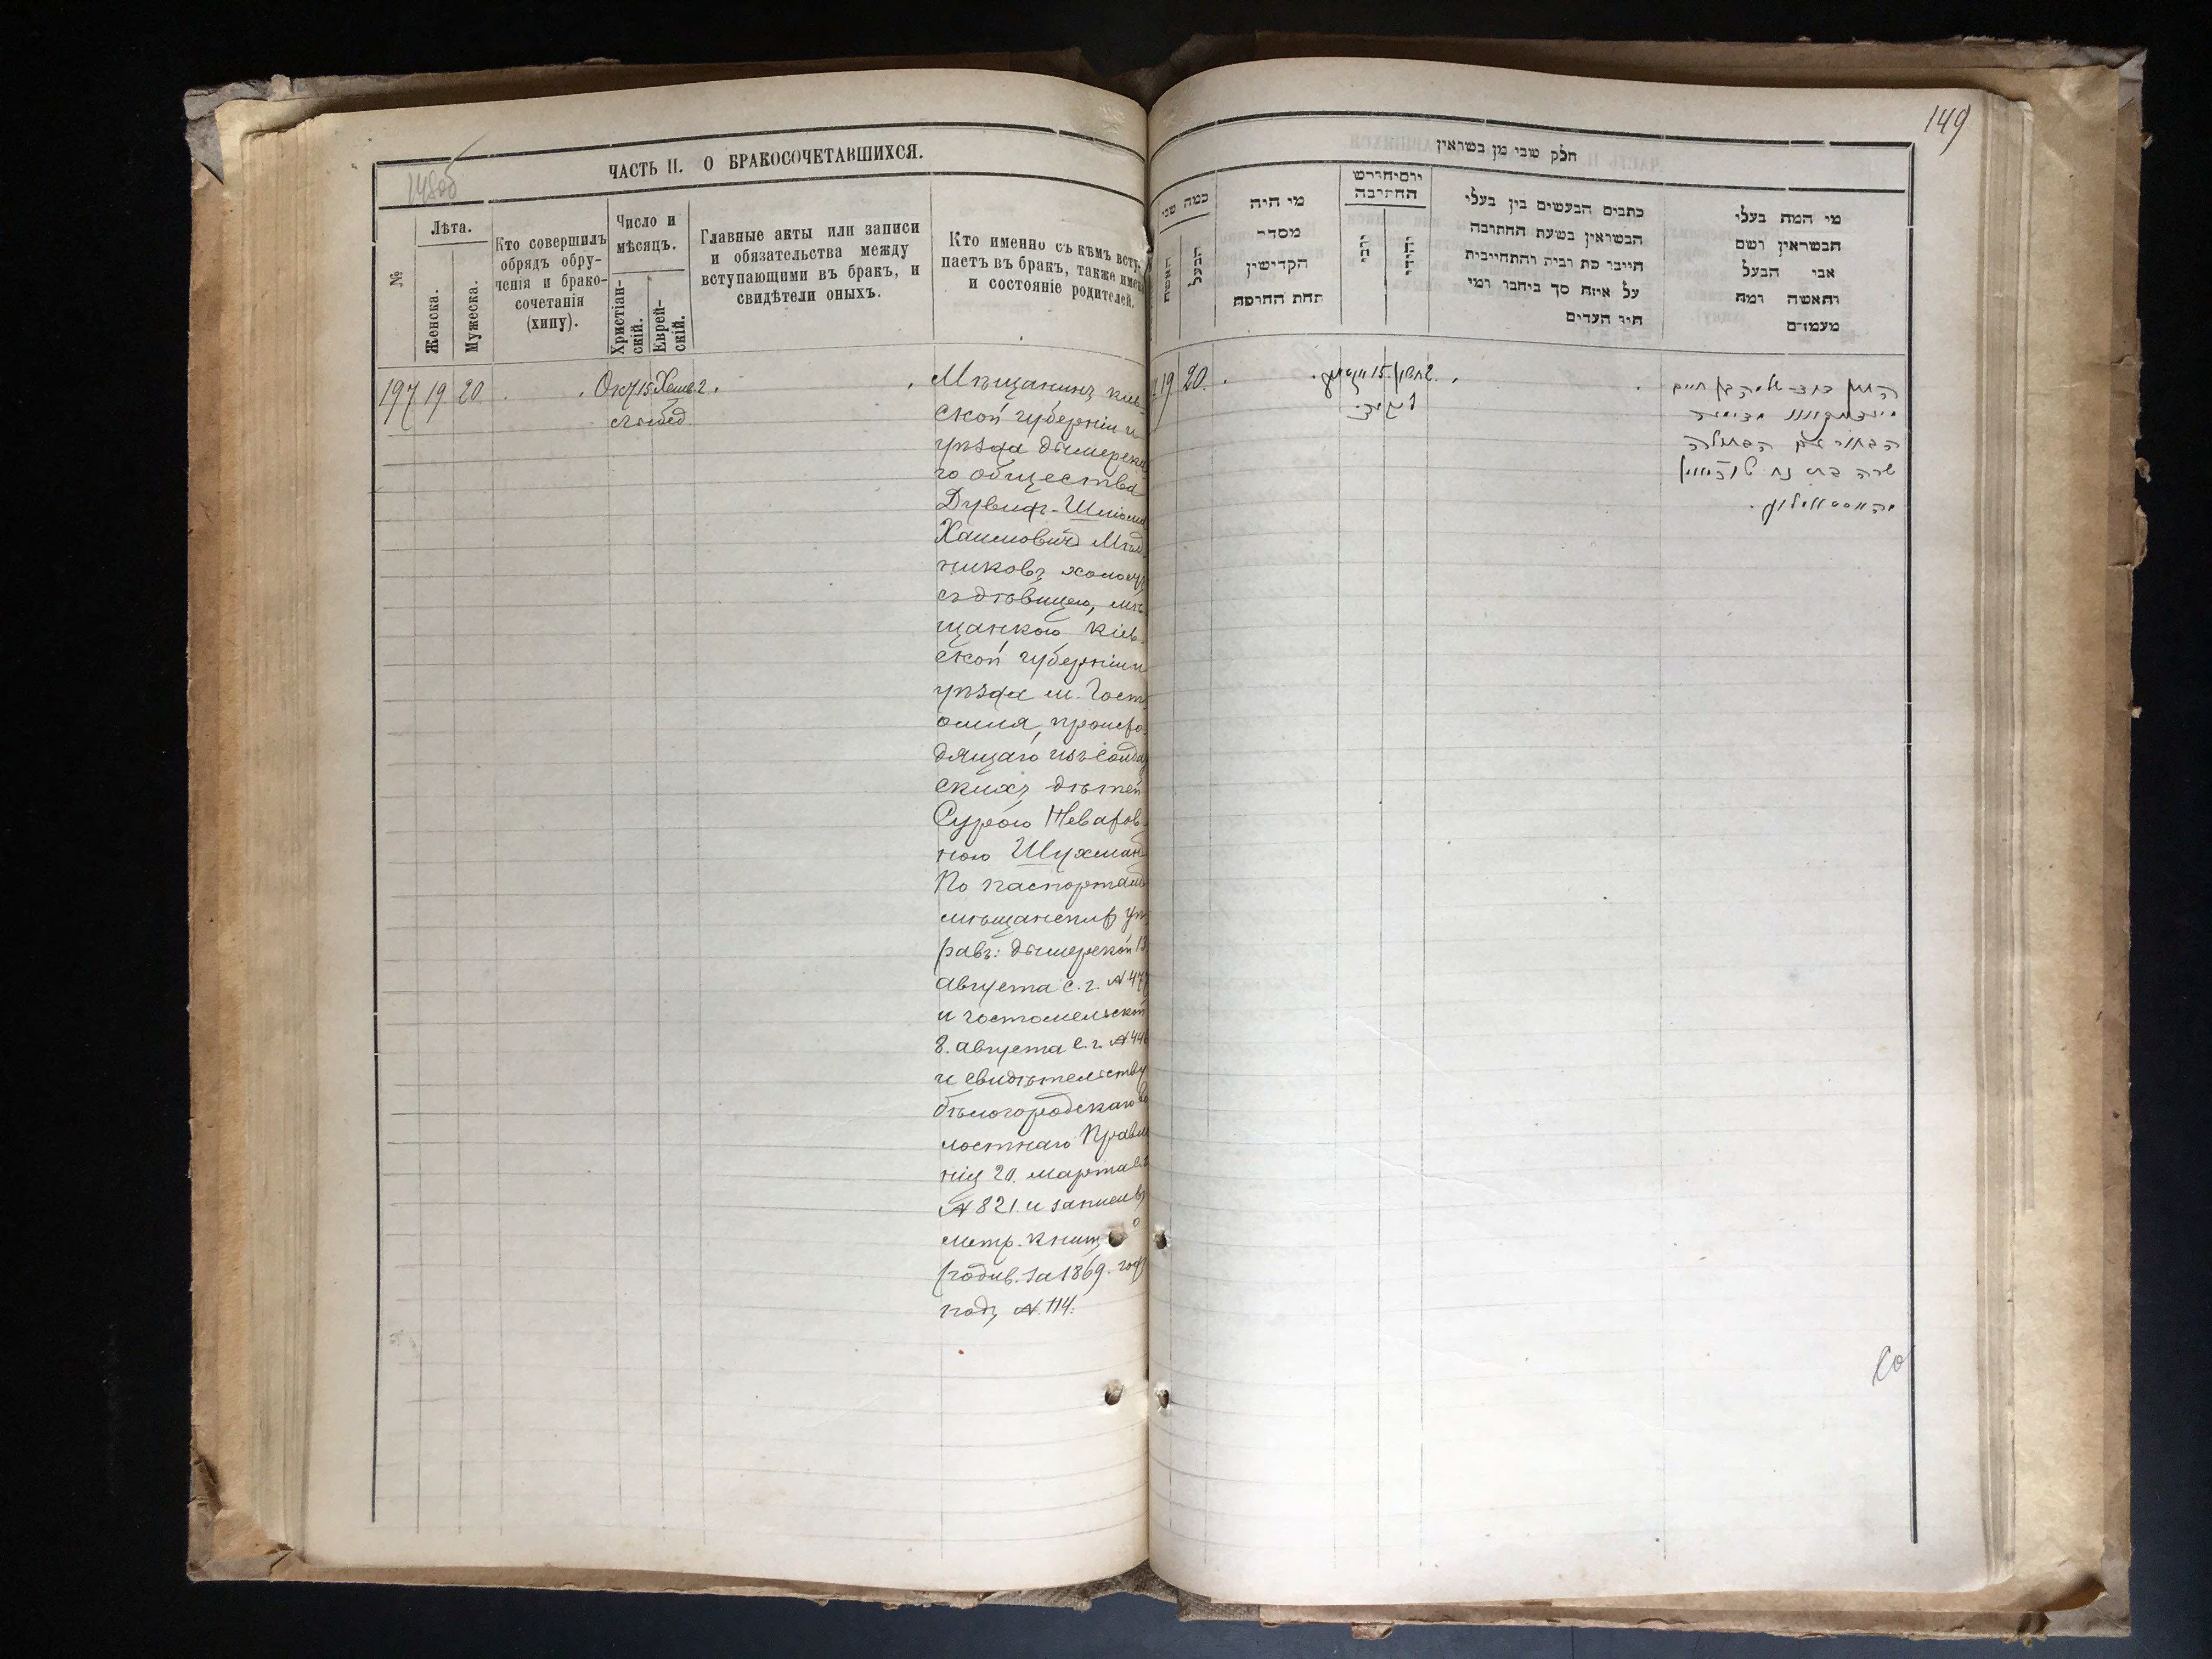 148об
ЧАСТЬ II. О БРАКОСОЧЕТАВШИХСЯ.
№
Лѣта.
Женска.
Мужеска.
Кто совершилъ
обрядъ обру-
ченія и брако-
сочетанія
(хипу).
Число и
мѣсяцъ.
Христіан-
скій.
Еврей-
скій.
Главные акты или записи
и обязательства между
вступающими въ брак, и
свидѣтели оныхъ.
Кто именно съ кѣмъ всту-
паетъ въ бракъ, также имена
и состояніе родителей.
197 19 20 Окт 15 Хешв. 2
Мѣщанинъ кіев-
ской губерніи и
уѣзда дымерска
го общества
Дувидъ-Шлiома
Хаимовичъ Мѣл
никовъ холостъ
съ дѣвицею, мѣ
щанкою кіев-
ской губерніи и
уѣзда м. Гост
омля, происхо-
дящаго изъ солдат
скихъ дѣтей
Сурою
ною Шухман
По паспортамъ
мѣщанских уп
равъ: дымерской 13
августа с. г. № 477
и гостомельской
8. августа с. г. № 446
и свидѣтельству
бѣлогородскаго Во
лостнаго Правле
нія 20. марта с. г.
№ 821. и записи въ
метр. книгѣ о
родив. за 1869. годъ
подъ №. 114.
149
חלק שני מן בשראין
כמה שני
האשה
הבעל
מי היה
מסדר
הקדישין
תחת החופה
יום וחדש
החתונה
יוני
יהודי
כתבים הנעשים בין בעלי
הנשואין בשעת החתונה
חייבו כת רבית והתחייבות
על איזה סך ביחבר ומי
היו העדים
מי המה בעלי
הנשואין ושם
אבי הבעל
והאשה ומה
מעמדם
19 20. 15
חיים
הבחור עם הבתולה
שרה בת נח